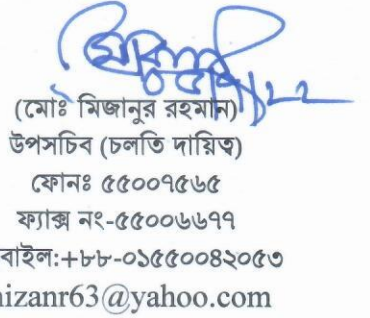 (মোঃ মিজানুর রহমান)
উপসচিব (চলতি দায়িত্ব)
ফোনঃ ৫৫০০৭৫৬৫
ফ্যাক্স নং-৫৫০০৬৬৭৭
বাইল:+৮৮-০১৫৫০০৪২০৫৩
izanr63@yahoo.com